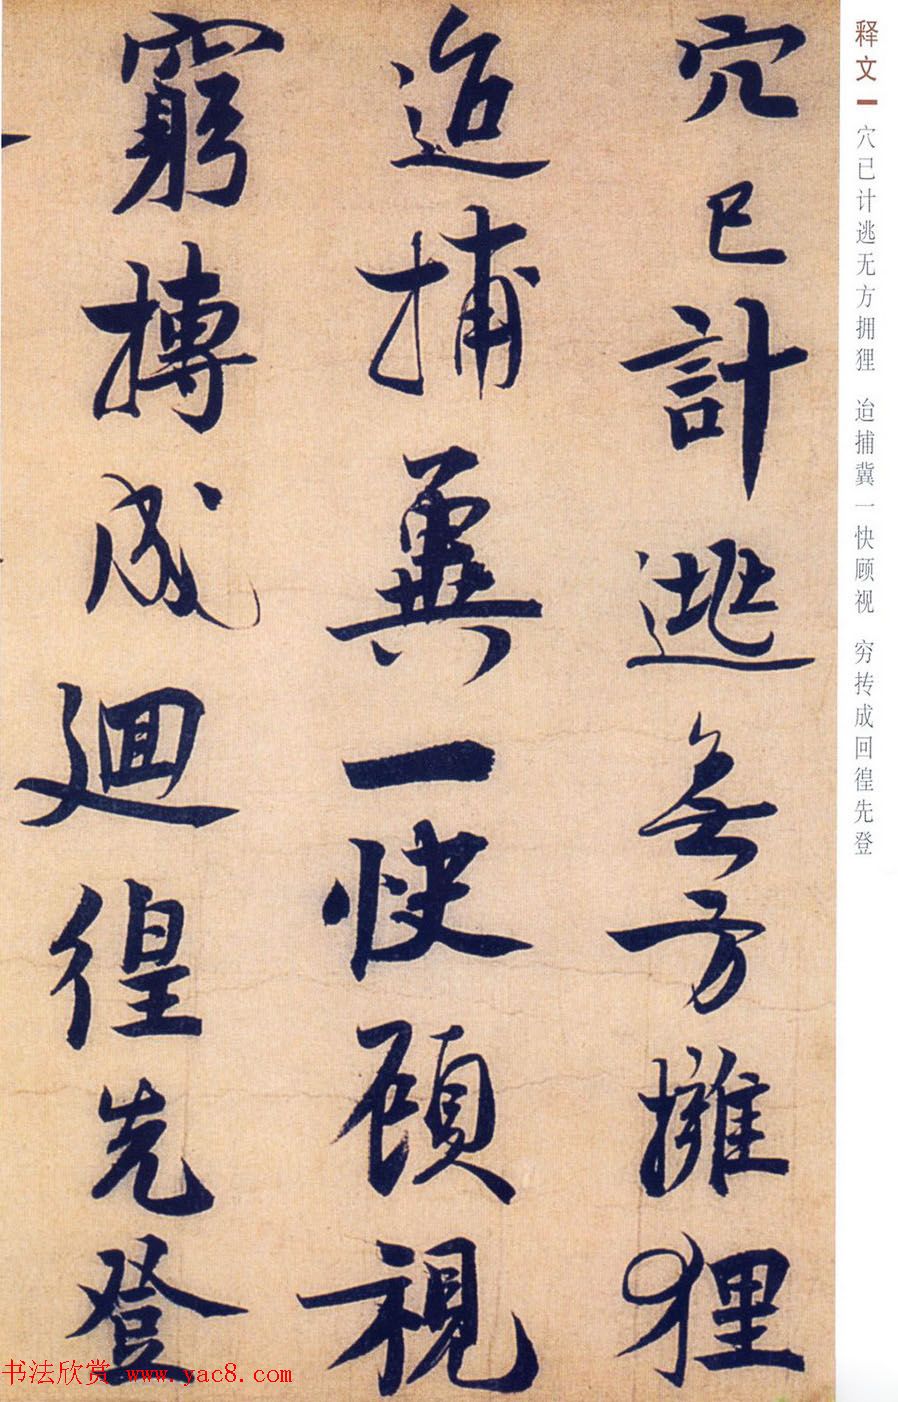 释文
穴已计逃无方拥狸 迨捕冀一快顾视 穷抟成回徨先登
穴已計逃無方擁狸
迨捕冀一快顧視
窮摶成迴徨先登
书法欣赏 www.yac8.com